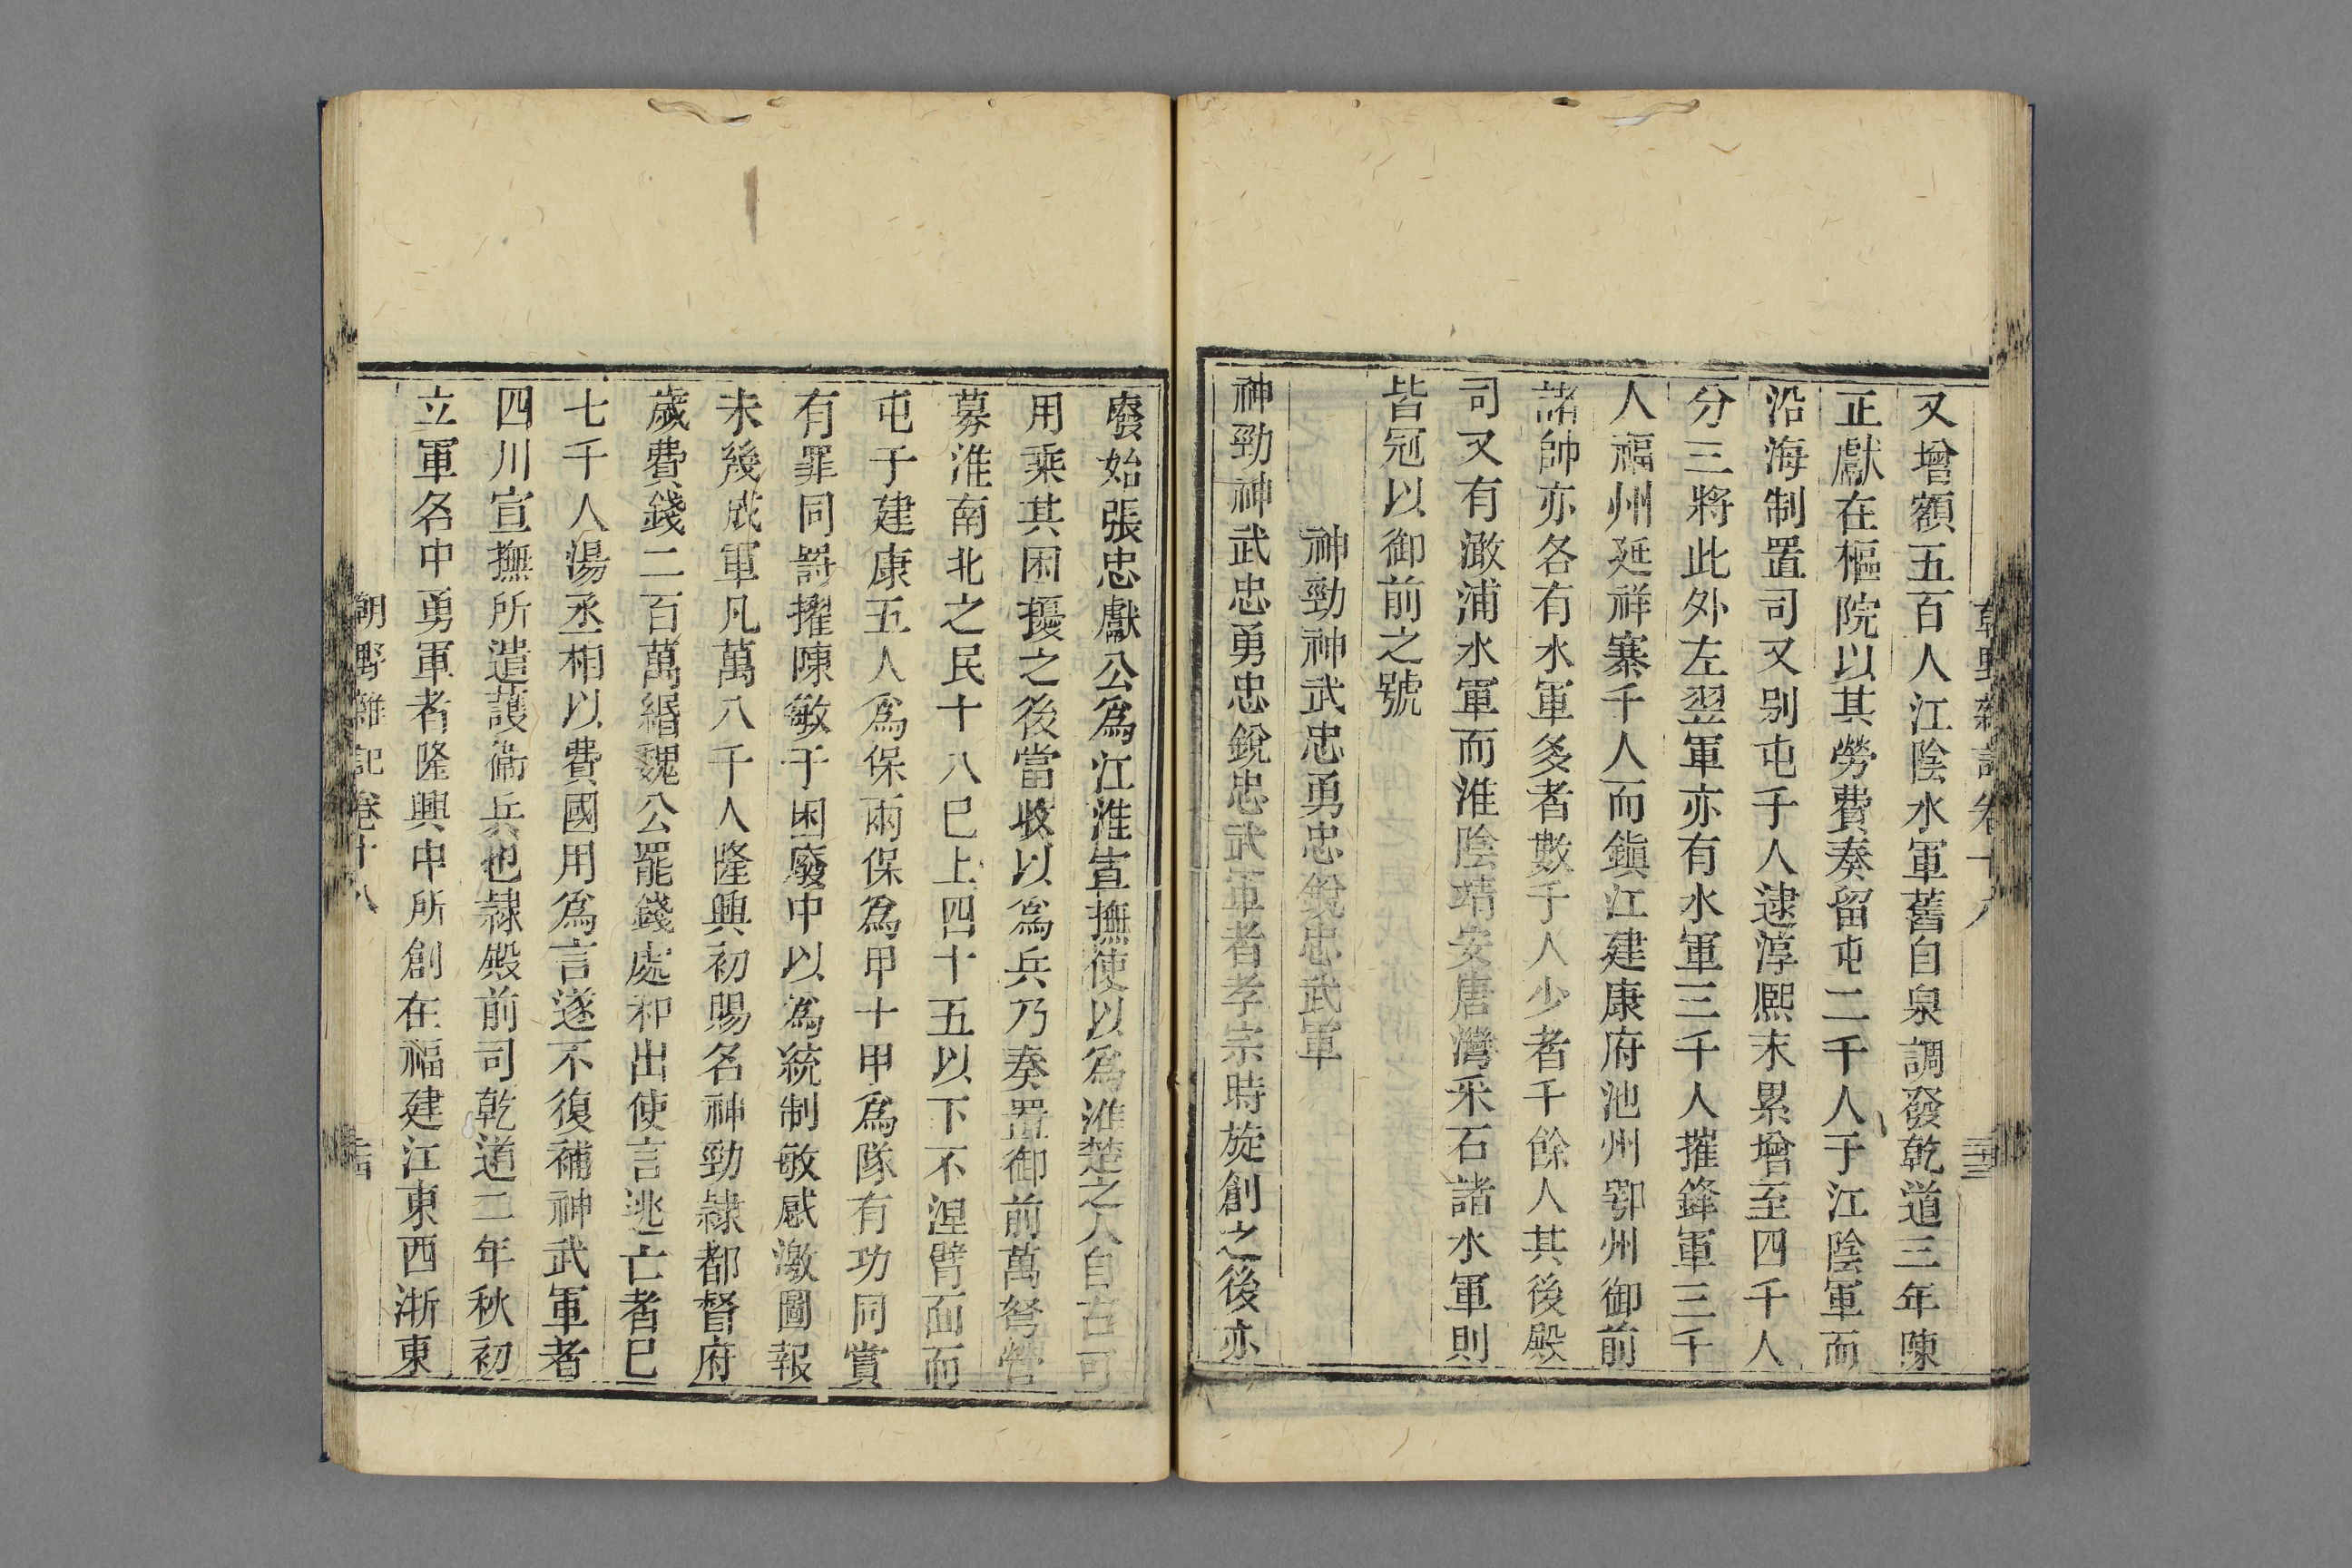 又增額五百人江陰水軍舊自泉調發乾道三年陳
正獻在樞院以其勞費奏留屯二千人于江陰軍而
沿海制置司又别屯千人逮淳熙末累增至四千人
分三將此外左翌軍亦有水軍三千人摧鋒軍三千
人福州延祥寨千人而鎭江建康府池州鄂州御前
諸帥亦各有水軍多者數千人少者千餘人其後殿
司又有澉浦水軍而淮陰靖安唐灣采石諸水軍則
皆冠以御前之號
神勁神武忠勇忠銳忠武軍
神勁神武忠勇忠銳忠武軍者孝宗時旋創之後亦
廢始張忠獻公爲江淮宣撫使以爲淮楚之人自古可
用乘其困擾之後當收以爲兵乃奏置御前萬弩營
募淮南北之民十八巳上四十五以下不涅臂面而
屯于建康五人爲保兩保爲甲十甲爲隊有功同賞
有罪同罸擢陳敏于困廢中以爲統制敏感激圖報
未幾成軍凡萬八千人隆興初賜名神勁隷都督府
歲費錢二百萬緡魏公罷錢處和出使言逃亡者巳
七千人湯丞相以費國用爲言遂不復補神武軍者
四川宣撫所遣護衞兵也隷殿前司乾道二年秋初
立軍名中勇軍者隆興中所創在福建江東西浙東
朝野雜記卷十八